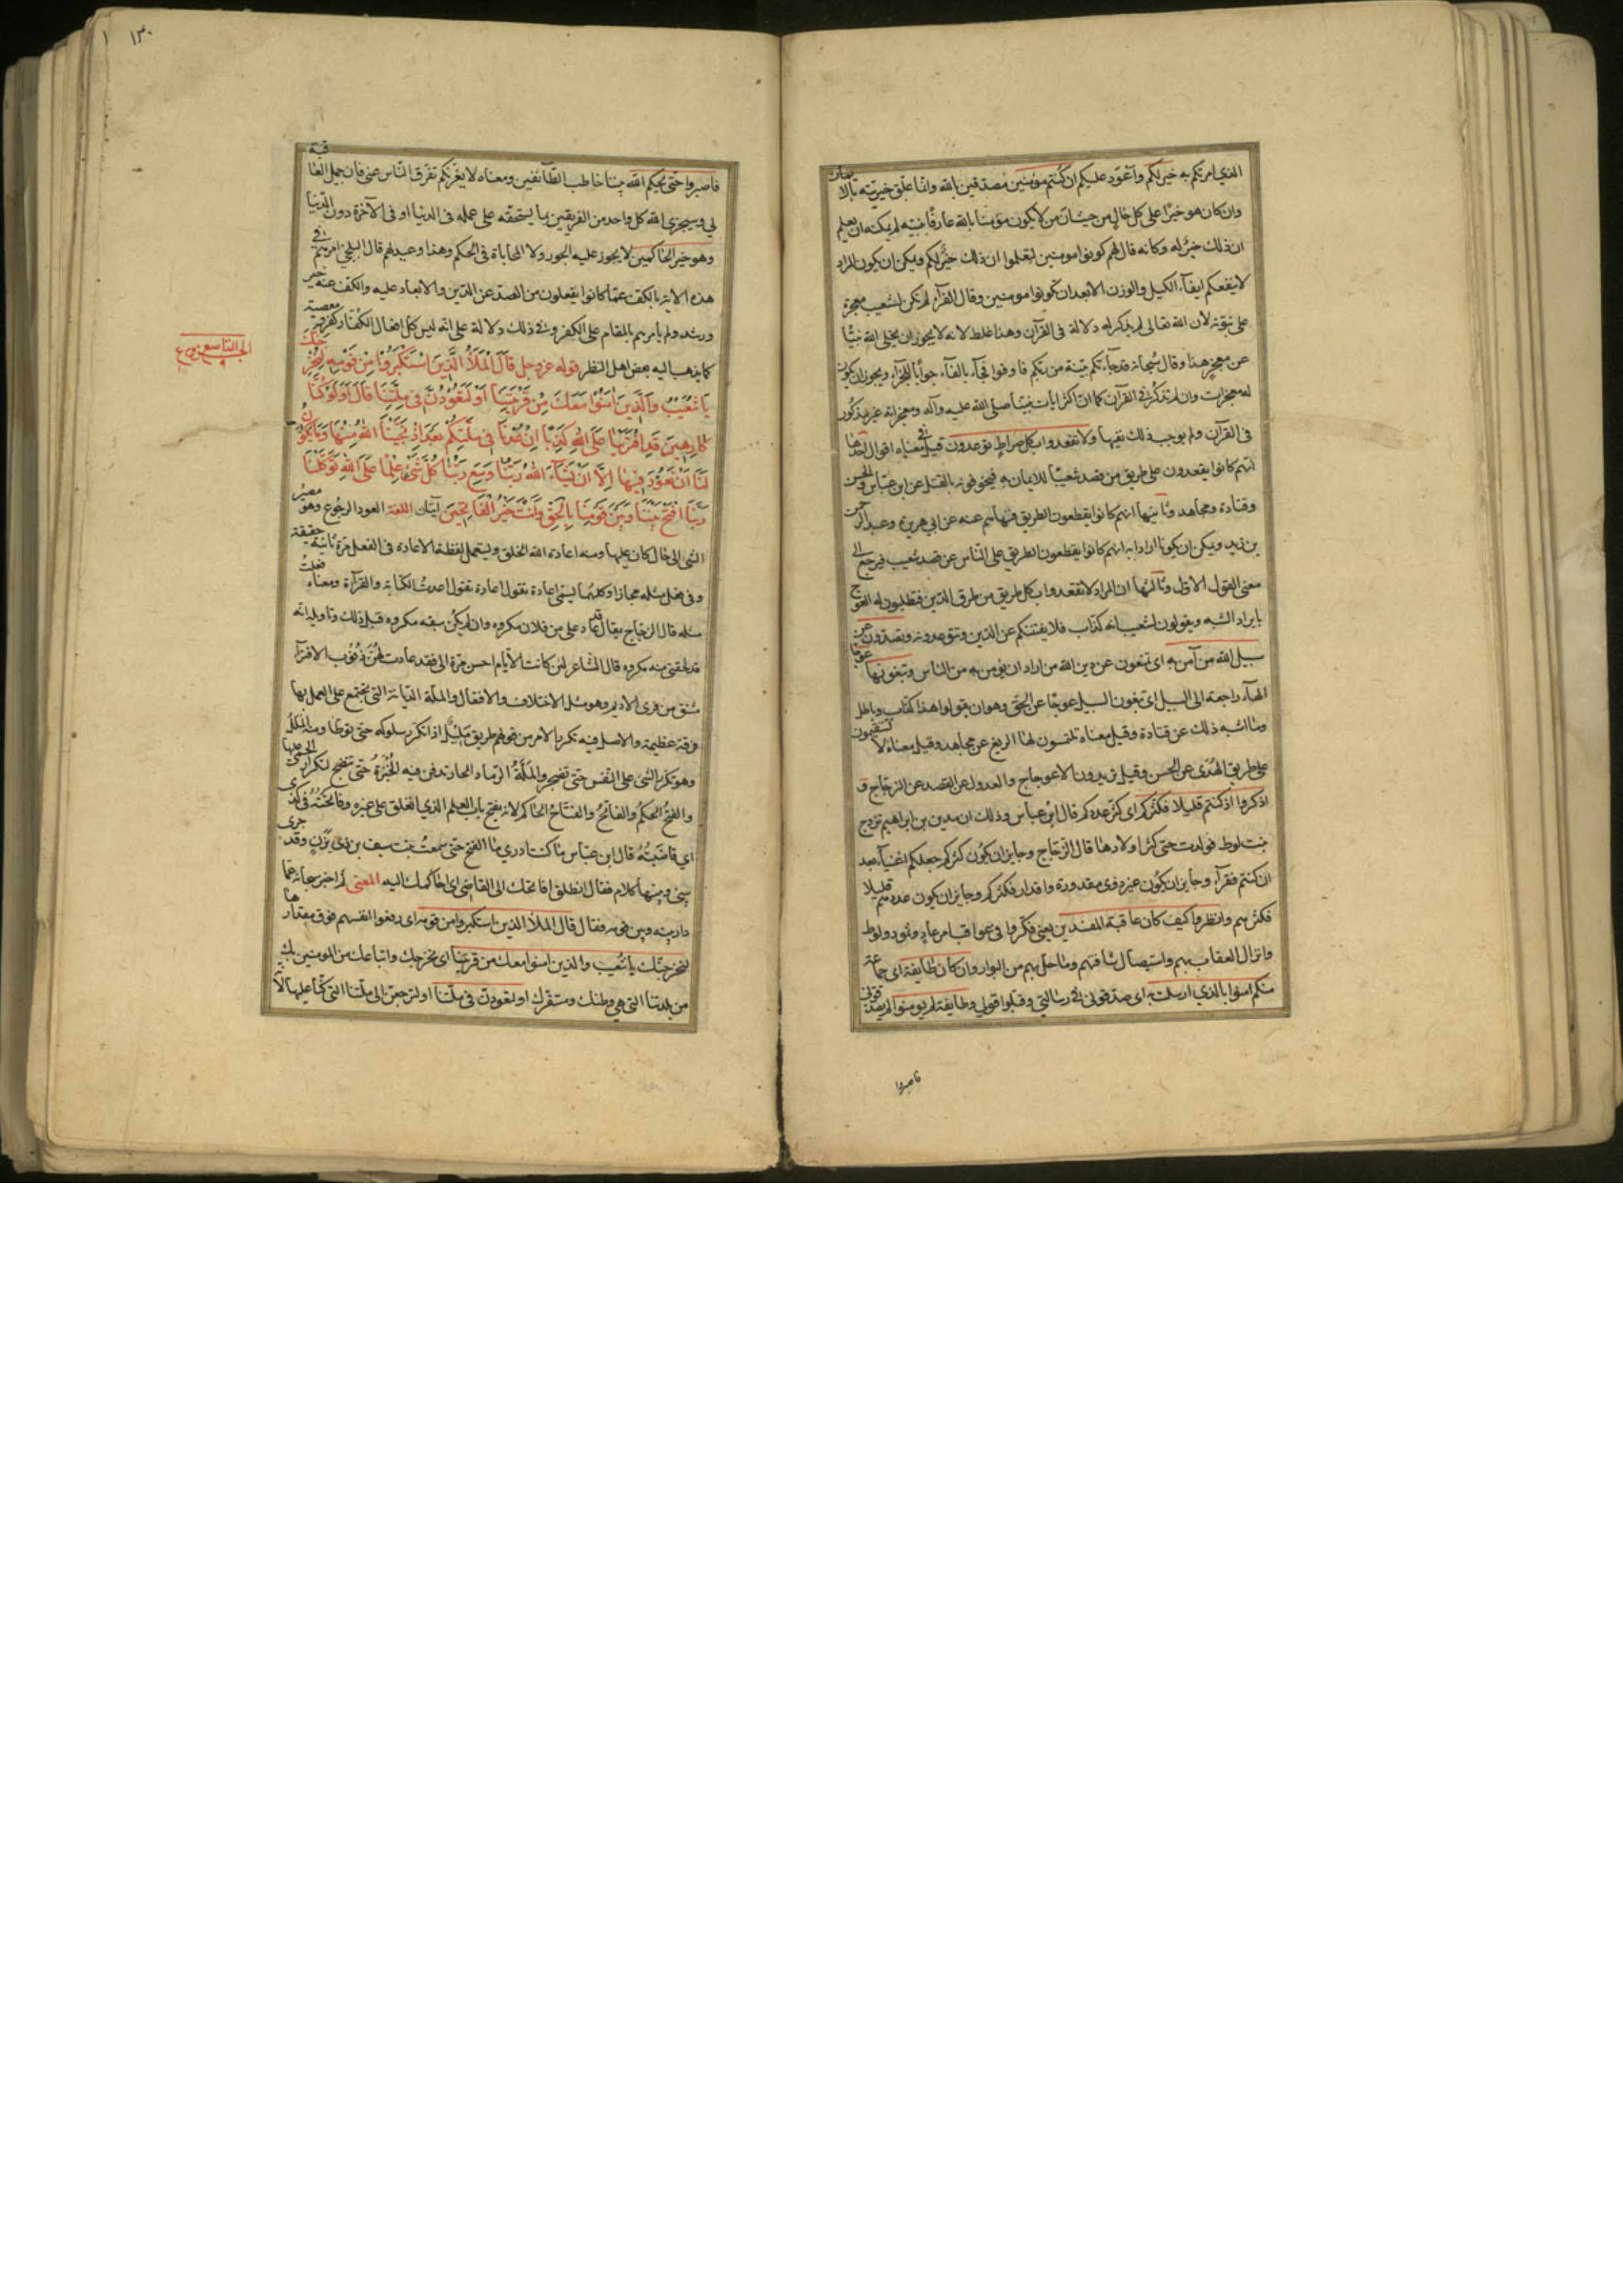 الذي امرتكم به خير لكم واعود عليكم ان كنتم مؤمنين مصدقين بالله وانما علق خيريته بالايمان
وان كان هو خيرا على كل حال من حيث ان من لا يكون مؤمنا بالله عارفا بنبيه لم يمكنه ان يعلم
ان ذلك خير له وكانه قال لهم كونوا مومنين لتعلموا ان ذلك خير لكم ويمكن ان يكون المراد
لا ينفعكم ايفآء الكيل والوزن الا بعد ان تكونوا مومنين وقال الفرآء لم تكن لشعيب معجزة
على نبوته لان الله تعالى لم يذكر له دلالة في القرآن وهذا غلط لانه لا يجوز ان يخلى الله نبيا
عن معجز هذا وقال سبحانه قد جآءتكم بينة من ربكم فاوفوا فجآء بالفآء جوابا للجزآء ويجوز ان يكون
له معجزات وان لم تذكر في القرآن كما ان اكثر ايات نبينا صلى الله عليه وآله ومعجزاته غير مذكور
في القرآن ولم يوجب ذلك نفيها ولا تقعدوا بكل صراط توعدون قيل في معناه اقوال احدها
انهم كانوا يقعدون على طريق من قصد شعيبا للايمان به فيخوفونه بالقتل عن ابن عباس والحسن
وقتادة ومجاهد وثانيها انهم كانوا يقطعون الطريق فنهاهم عنه عن ابي هريرة وعبد الرحمن
بن زيد ويمكن ان يكونا ارادا به انهم كانوا يقطعون الطريق على الناس عن قصد شعيب فيرجع الى
معنى القول الاول وثالثها ان المراد لا تقعدوا بكل طريق من طرق الدين فتطلبون له العوج
بايراد الشبه ويقولون لشعيب انه كذاب فلا يفتننكم عن الدين وتتوعدونه وتصدون عن
سبيل الله من آمن به اى تمنعون عن دين الله من اراد ان يؤمن به من الناس وتبغونها عوجا
الهآء راجعة الى السبيل اى تبغون السبيل عوجا عن الحق وهو ان يقولوا هذا كذب وباطل
وما اشبه ذلك عن قتادة وقيل معناه تلتمسون لها الزيغ عن مجاهد وقيل معناه لا تستقيمون
على طريق الهدى عن الحسن وقيل يريدون الاعوجاج والعدول عن القصد عن الزجاج و
اذكروا اذ كنتم قليلا فكثركم اى كثر عددكم قال ابن عباس وذلك ان مدين بن ابراهيم تزوج
بنت لوط فولدت حتى كثر اولادها قال الزجاج وجايز ان يكون كثركم جعلكم اغنيآء بعد
ان كنتم فقرآء وجايز ان يكون غير ذوى مقدورة واقدار فكثركم وجايز ان يكون عددهم قليلا
فكثرهم وانظروا كيف كان عاقبة المفسدين يعنى فكروا في عواقب امر عاد وثمود ولوط
وانزال العقاب بهم واستيصال شافتهم وما حل بهم من البوار وان كان طايفة اى جماعة
منكم امنوا بالذي ارسلت به اى صدقونى في رسالتي وقبلوا قولي وطايفة لم يومنوا لم يصدقونى
فاصبروا
١٣٠
فاصبروا حتى يحكم الله بيننا خاطب الطآئفتين ومعناه لا يغرنكم تفرق الناس عنى فان جميل العاقبة
لي وسيجزى الله كل واحد من الفريقين بما يستحقه على عمله في الدنيا او في الآخرة دون الدنيا
وهو خير الحاكمين لا يجوز عليه الجور ولا المحاباة في الحكم وهذا وعيد لهم قال البلخي امرهم في
هذه الاية بالكف عما كانوا يفعلون من الصد عن الدين والابعاد عليه والكف عنه خير
ورشد ولم يأمرهم بالمقام على الكفر وفي ذلك دلالة على انه ليس كل افعال الكفار كفر ومعصية
كما يذهب اليه بعض اهل النظر قوله عز وجل قال الملأ الذين استكبروا من قومه لنخرجنك
يا شعيب والذين امنوا معك من قريتنا او لتعودن في ملتنا قال اولو كنا
كارهين قد افترينا على الله كذبا ان عدنا في ملتكم بعد اذ نجينا الله منها وما يكون
لنا ان نعود فيها الا ان يشآء الله ربنا وسع ربنا كل شئ علما على الله توكلنا
ربنا افتح بيننا وبين قومنا بالحق وانت خير الفاتحين آيتان اللغة العود الرجوع وهو مصير
الشئ الى حال كان عليها ومنه اعادة الله الخلق ويستعمل لفظة الاعادة في الفعل مرة ثانية حقيقة
وفي فعل مثله مجازا وكلاهما يسمى اعادة تقول اعادة تقول اعدت الكتابة والقرآءة ومعناه فعلت
مثله قال الزجاج يقال قد عاد على من فلان مكروه وان لم يكن سبقه مكروه قبل ذلك وتاويله انه
قد لحقنى منه مكروه قال الشاعر لئن كانت الايام احسن مرة الى فقد عادت لهن ذنوب الافترآء
مشتق من فرى الاديم وهو مثل الاختلاف والافتعال والملة الديانة التي يجتمع على العمل بها
فرقة عظيمة والاصل فيه تكرر الامر من قولهم طريق مليل اذا تكرر سلوكه حتى توطأ ومنه الملل
وهو تكرر الشئ على النفس حتى تضجر والملة الرماد الحار تدفن فيه الخبزة حتى تنضج لتكرار الحمى عليها
والفتح الحكم والفاتح والفتاح الحاكم لانه يفتح باب العلم الذي انغلق على غيره وفاتحته في كذى
اي قاضيته قال ابن عباس ما كنت ادري ما الفتح حتى سمعت بنت سيف بن ذى يزن وقد جرى
بينى وبينها كلام فقال انطلق افاتحك الى القاضى اى احاكمك اليه المعنى ثم اخبر سبحانه عما
دار بينه وبين قومه فقال قال الملأ الذين استكبروا من قومه اى رفعوا انفسهم فوق مقدارها
لنخرجنك يا شعيب والذين امنوا معك من قريتنا اى نخرجك واتباعك من المومنين بك
من بلدتنا التي هي وطنك ومستقرك او لتعودن في ملتنا او لترجعن الى ملتنا التي كنا عليها لان
الجزء التاسع